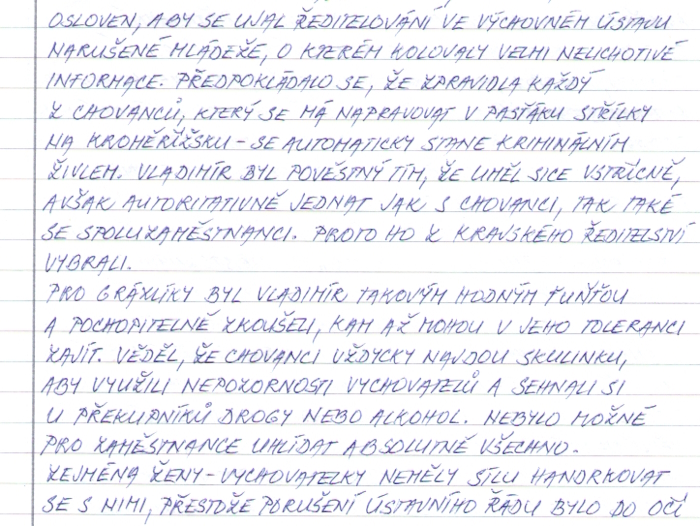 OSLOVEN, ABY SE UJAL ŘEDITELOVÁNÍ VE VÝCHOVNÉM ÚSTAVU
NARUŠENÉ MLÁDEŽE, O KTERÉM KOLOVALY VELMI NELICHOTIVÉ
INFORMACE. PŘEDPOKLÁDALO SE, ŽE ZPRAVIDLA KAŽDÝ
Z CHOVANCŮ, KTERÝ SE MÁ NAPRAVOVAT V PASŤÁKU STŘÍLKY
NA KROMĚŘÍŽSKU - SE AUTOMATICKY STANE KRIMINÁLNÍM
ŽIVLEM. VLADIMÍR BYL POVĚSTNÝ TÍM, ŽE UMĚL SICE VSTŘÍCNĚ,
AVŠAK AUTORITATIVNĚ JEDNAT JAK S CHOVANCI, TAK TAKÉ
SE SPOLUZAMĚSTNANCI. PROTO HO Z KRAJSKÉHO ŘEDITELSTVÍ
VYBRALI.
PRO GRÁZLÍKY BYL VLADIMÍR TAKOVÝM HODNÝM ŤUŇŤOU
A POCHOPITELNĚ ZKOUŠELI, KAM AŽ MOHOU V JEHO TOLERANCI
ZAJÍT. VĚDĚL, ŽE CHOVANCI VŽDYCKY NAJDOU SKULINKU,
ABY VYUŽILI NEPOZORNOSTI VYCHOVATELŮ A SEHNALI SI
U PŘEKUPNÍKŮ DROGY NEBO ALKOHOL. NEBYLO MOŽNÉ
PRO ZAMĚSTNANCE UHLÍDAT ABSOLUTNĚ VŠECHNO.
ZEJMÉNA ŽENY - VYCHOVATELKY NEMĚLY SÍLU HANDRKOVAT
SE S NIMI, PŘESTOŽE PORUŠENÍ ÚSTAVNÍHO ŘÁDU BYLO DO OČÍ